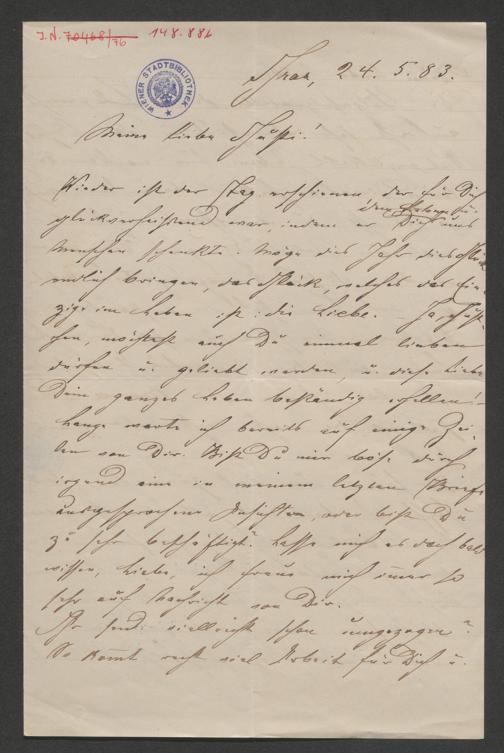 J.N. 70468/76 148.886
WIENER STADTBIBLIOTHEK
Graz, 24.5.83.
Meine liebe Gusti!
Wieder ist der Tag erschienen der für Dich
glückverheißend war, indem er Dich uns
Menschen schenkte. Möge dies Jahr dies Glück
endlich bringen, das Glück, welches das Ein-
zige im Leben ist: die Liebe. – Ja,
möchtest auch Du einmal lieben
dürfen u. geliebt werden, u. diese Liebe
Dein ganzes Leben beständig erhellen! –
Lange warte ich bereits auf einige Zei-
len von Dir. Bist Du mir böse durch
irgend eine in meinem letzten Briefe
ausgesprochene Ansichten, oder bist Du
zu sehr beschäftigt. Lasse mich es doch bald
wissen, Liebe, ich freue mich immer so
sehr auf Nachricht von Dir.
Ihr seid vielleicht schon umgezogen?
So kommt recht viel Arbeit für Dich u.